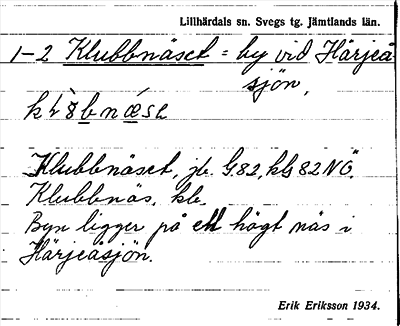 Lillhärdals sn. Svegs tg. Jämtlands län.
1-2 Klubbnäset = by vid Härjeå-
sjön,
Klubbnäset, jb. G.82, kbg 82 NÖ.
Klubbnäs, kb.
Byn ligger på ett högt näs i
Härjeåsjön.
Erik Eriksson 1934.